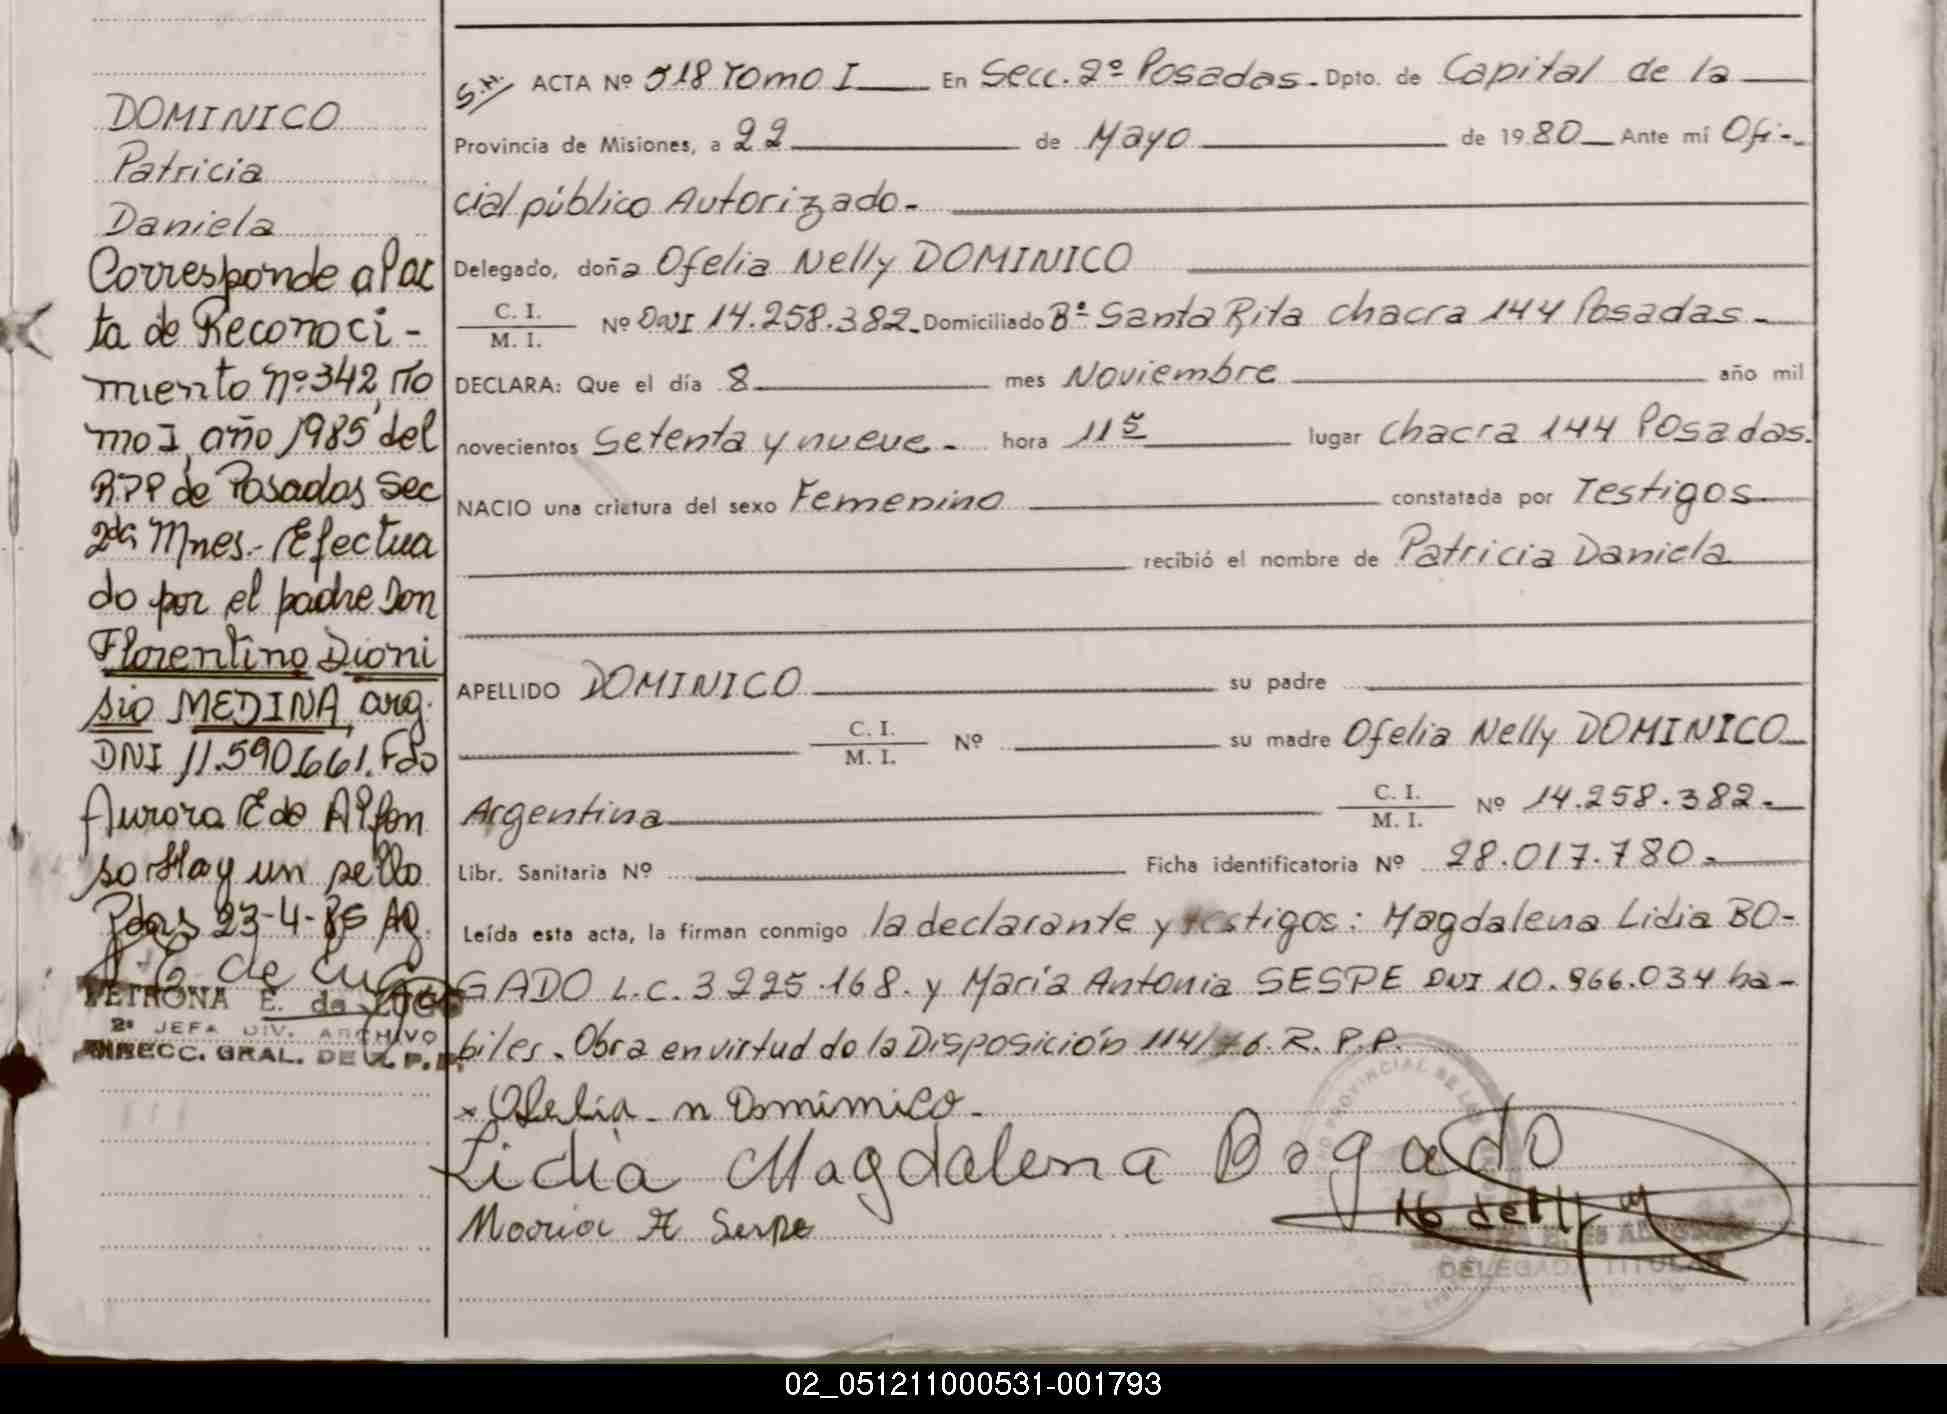 DOMINICO
Patricia
Daniela
Corresponde al ac
ta de Reconoci-
miento nº 342, To
mo I, año 1985 del
RPP de Posadas Sec
2da Mnes.- Efectua
do por el padre Don
Florentino Dioni
sio MEDINA, arg.
DNI 11.590.661. Fdo
Aurora E de Alfon
so Hay un sello
Pdas 23-4-85
PETRONA E. de LUGO
2º JEFA DIV. ARCHIVO
DIRECC. GRAL. DE R. P. P.
S.H. ACTA Nº 518 Tomo I En Secc. 2º Posadas. Dpto. de Capital de la
Provincia de Misiones, a 22 de Mayo de 1980 Ante mí Ofi-
cial público Autorizado-
Delegado, doña Ofelia Nelly DOMINICO
C. I.
M. I. Nº DNI 14.258.382. Domiciliado Bº Santa Rita chacra 144 Posadas-
DECLARA: Que el día 8 mes Noviembre año mil
novecientos Setenta y nueve- hora 11 5 lugar chacra 144 Posadas.
NACIO una criatura del sexo Femenino constatada por Testigos
recibió el nombre de Patricia Daniela
APELLIDO DOMINICO su padre
C. I.
M. I. Nº su madre Ofelia Nelly DOMINICO
Argentina C. I.
M. I. Nº 14.258.382.-
Libr. Sanitaria Nº Ficha identificatoria Nº 28.017.780.-
Leída esta acta, la firman conmigo la declarante y testigos: Magdalena Lidia BO-
GADO L.C. 3225.168. y María Antonia SESPE DNI 10.966.034 ha-
biles. Obra en virtud de la Disposición 114/76. R. P.P.
x Ofelia n Dominico.
Lidia Magdalena Bogado
Maria A Sespe
DELEGADA TITULAR
02_051211000531-001793